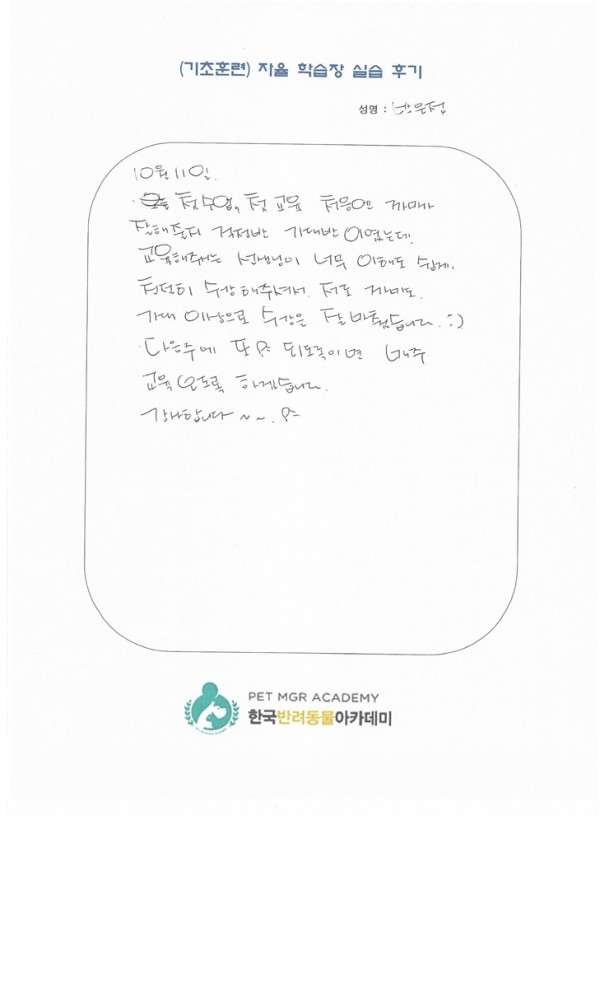 (기초훈련) 자율 학습장 실습 후기
성명 : 박은정
10월 11일.
첫수업, 첫 교육 처음이라 까미가
잘해줄지 걱정반 기대반 이였는데.
교육해주시는 선생님이 너무 이해도 쉽게,
천천히 수강해주셔서. 저도 까미도.
기대 이상으로 수강은 잘 마쳤습니다. :)
다음주에 또 되도록이면 매주
교육 오도록 하겠습니다.
감사합니다 ~ ~.
PET MGR ACADEMY
한국반려동물아카데미